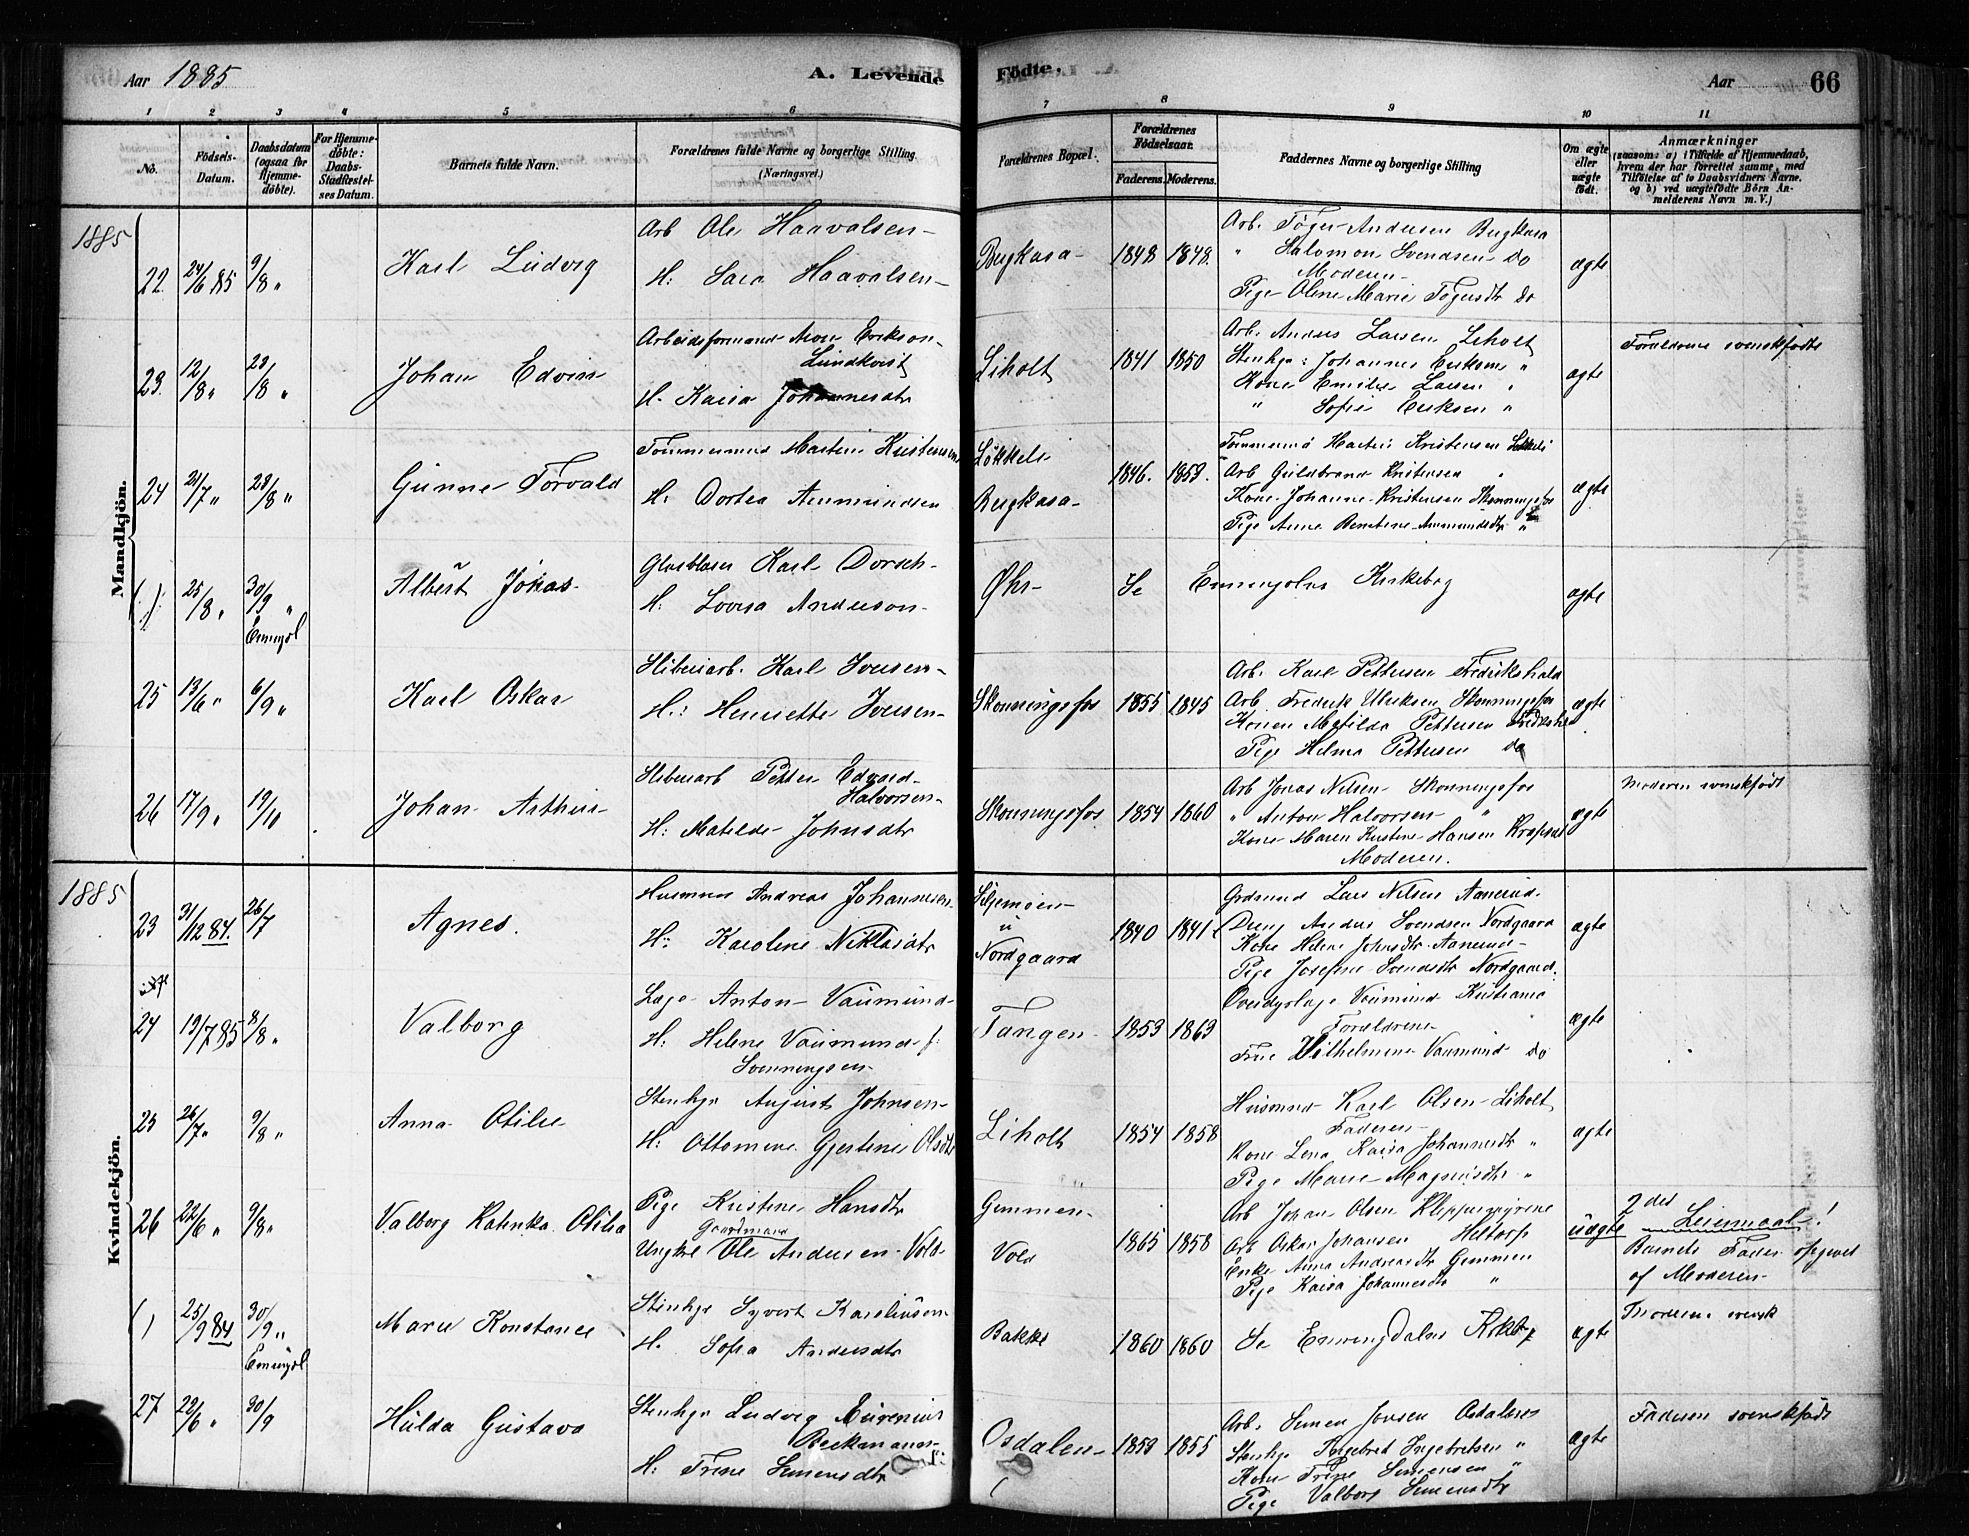 Aar 1885
A. Levende
Födte.
Aar
66
1 2 3 4 5 6 7 8 9 10 11
No.
Födsels-
Datum.
Daabsdatum
(ogsaa for
Hjemme-
döbte).
For Hjemme-
döbte:
Daabs-
Stadfæstel-
ses Datum.
Barnets fulde Navn.
Forældrenes fulde Navne og borgerlige Stilling
(Næringsvei.)
Forældrenes Bopæl.
Forældrenes
Födselsaar.
Faderens. Moderens.
Faddernes Navne og borgerlige Stilling
Om ægte
eller
uægte
födt.
Anmærkninger
(saasom: a) i Tilfælde af Hjemmedaab,
hvem der har forrettet samme, med
Tilföielse af to Daabsvidners Navne,
og b) ved uægtefödte Börn An-
melderens Navn m. V.)
Mandkjön.
1885
22. 24/6 85 9/8 "
Karl Ludvig
Arb Ole Haavalsen
H: Sara Haavalsen
Bergkasa 1848 1848.
Arb. Töger Andersen Bergkasa
" Salomon Svendsen do
Moderen
Pige Oline Marie Tögersdtr do
ægte
23. 12/8 " 23/8 "
Johan Edvin
Arbeidsformand Aron Erikson
Lundkvist
H. Kaisa Johannesdtr
Liholt 1841 1850
Arb. Anders Larsen Liholt
Stenhgr: Johannes Eriksen "
Kone Emilie Larsen "
" Sofie Eriksen "
ægte
Forældrene svenskfödte
24 21/7 " 23/8 "
Gunne Torvald
Tömmermd Martin Kristensen
H: Dortea Ammundsen
Lökkele
Bergkasa 1846. 1853.
Tömmermd Martin Kristensen Lökkele
Arb Guldbrand Kristensen "
Kone Johanne Kristensen Skonningsfos
Pige Anne Berntine Ammundsdtr "
ægte
(.) 25/8 " 30/9 "
Enningd
Albert Jonas
Glasblaser Karl Dorsch
H: Lovisa Anderson
Öhr Se Enningdalens Kirkebog
ægte
25 13/6 " 6/9 "
Karl Oskar
Sliberiarb. Karl Iversen
H.: Henriette Iversen
Skonningsfos 1855 1845
Arb. Karl Pettersen Fredrikshald
Arb. Frederik Ulriksen Skonningsfos
Konen Matilda Pettersen Fredriksh
Pige Helma Pettersen do
ægte
26 17/9 " 19/10
Johan Arthur
Sliberiarb Petter Edvard
Halvorsen
H: Matilde Johnsdtr
Skonningsfos 1854 1860
Arb Jonas Nilsen Skonningsfos
" Anton Halvorsen "
Kone Maren Kristine Hansen
Moderen.
ægte
Moderen svenskfödt
Kvindekjön.
1885
23 31/12 84. 26/7
Agnes.
Husmand Andreas Johannesen
H: Karoline Niklasdtr
Nordgaard 1840 1841
Grdmand Lars Nilsen Aanerud.
Dreng Anders Svendsen Nordgaard
Kone Helene Johnsdtr Aanerud
Pige Josefine Svendsdtr Nordgaard.
ægte
24 19/7 85 8/8 "
Valborg
Læge Anton Vaumund
H. Helene Vaumund f:
Svenningsen
Tangen 1853 1863
Overdyrlæge Vaumund Kristiania
Forældrene
Frue Vilhelmine Vaumund do
ægte
25 26/7 " 9/8 "
Anna Otilie
Stenhgr August Johnsen
H: Ottomine Gjertine Olsdtr
Liholt 1854 1858
Husmand Karl Olsen Liholt
Faderen
Kone Lena Kaisa Johannesdtr "
Pige Marie Magnusdtr "
ægte
26 22/6 " 9/8 "
Valborg Katinka Otilia
Pige Kristine Hansdtr
Gaardmand
Ungkrl Ole Andersen Vold
Gommen
Vold 1865 1858
Arb Johan Olsen Kleppermyrene
Arb Oskar Johansen Heltorp
Enke Anna Andreasdtr Gommen
Pige Kaisa Johannesdtr "
uægte
2det
Leiermaal!
Barnets Fader opgivet
af Moderen
( ) 25/9 84 30/9 "
Enningd
Marie Konstance
Stenhgr Syvert Karelinsen
H. Sofia Andersdtr
Bakke 1860 1860 Se Enningdalens Kirkeb
ægte
Moderen svensk
27 22/6 " 30/9
Hulda Gustava
Stenhgr Ludvig Eugenius
Beckman
H: Trine Simensdtr
Osdalen 1853 1855
Arb. Simen Jonsen Osdalen
Stenhgr Ingebret Ingebretsen "
Kone Trine Simensen "
Pige Valborg Simensdtr
ægte
Faderen svenskfödt